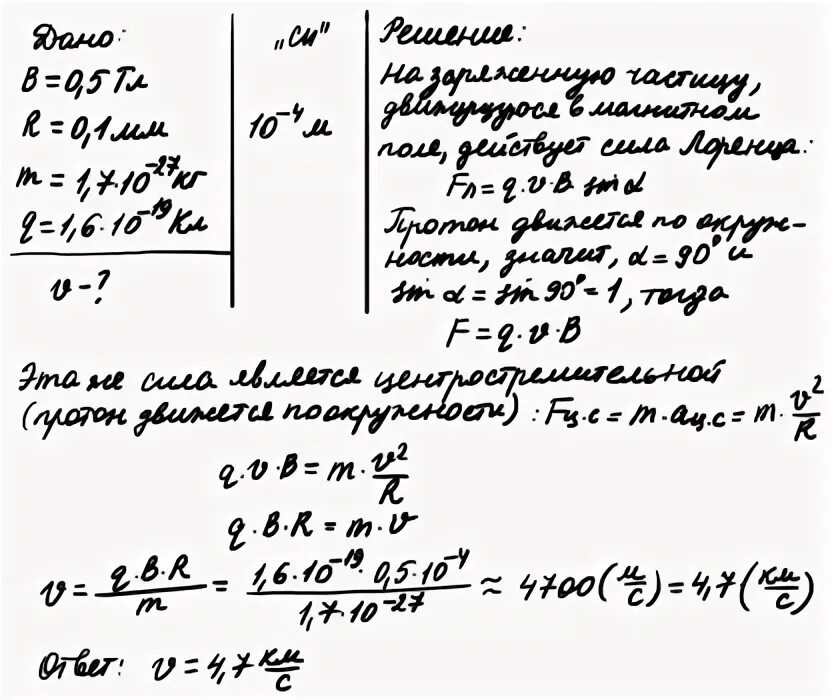 Дано:
B = 0,5 Тл
R = 0,1 мм
m = 1,7·10⁻²⁷ кг
q = 1,6·10⁻¹⁹ Кл
v - ?
„СИ"
10⁻⁴ м
Решение:
На заряженную частицу,
движущуюся в магнитном
поле, действует сила Лоренца:
Fл = q·v·B sin α
Протон движется по окруж-
ности, значит, α = 90° и
sin α = sin 90° = 1, тогда
F = q·v·B
Эта же сила является центростремительной
(протон движется по окружности): Fц.с = m·aц.с = m·v²/R
q·v·B = m·v²/R
q·B·R = m·v
v = q·B·R/m = 1,6·10⁻¹⁹·0,5·10⁻⁴/1,7·10⁻²⁷ ≈ 4700 (м/с) = 4,7 (км/с)
Ответ: v = 4,7 км/с